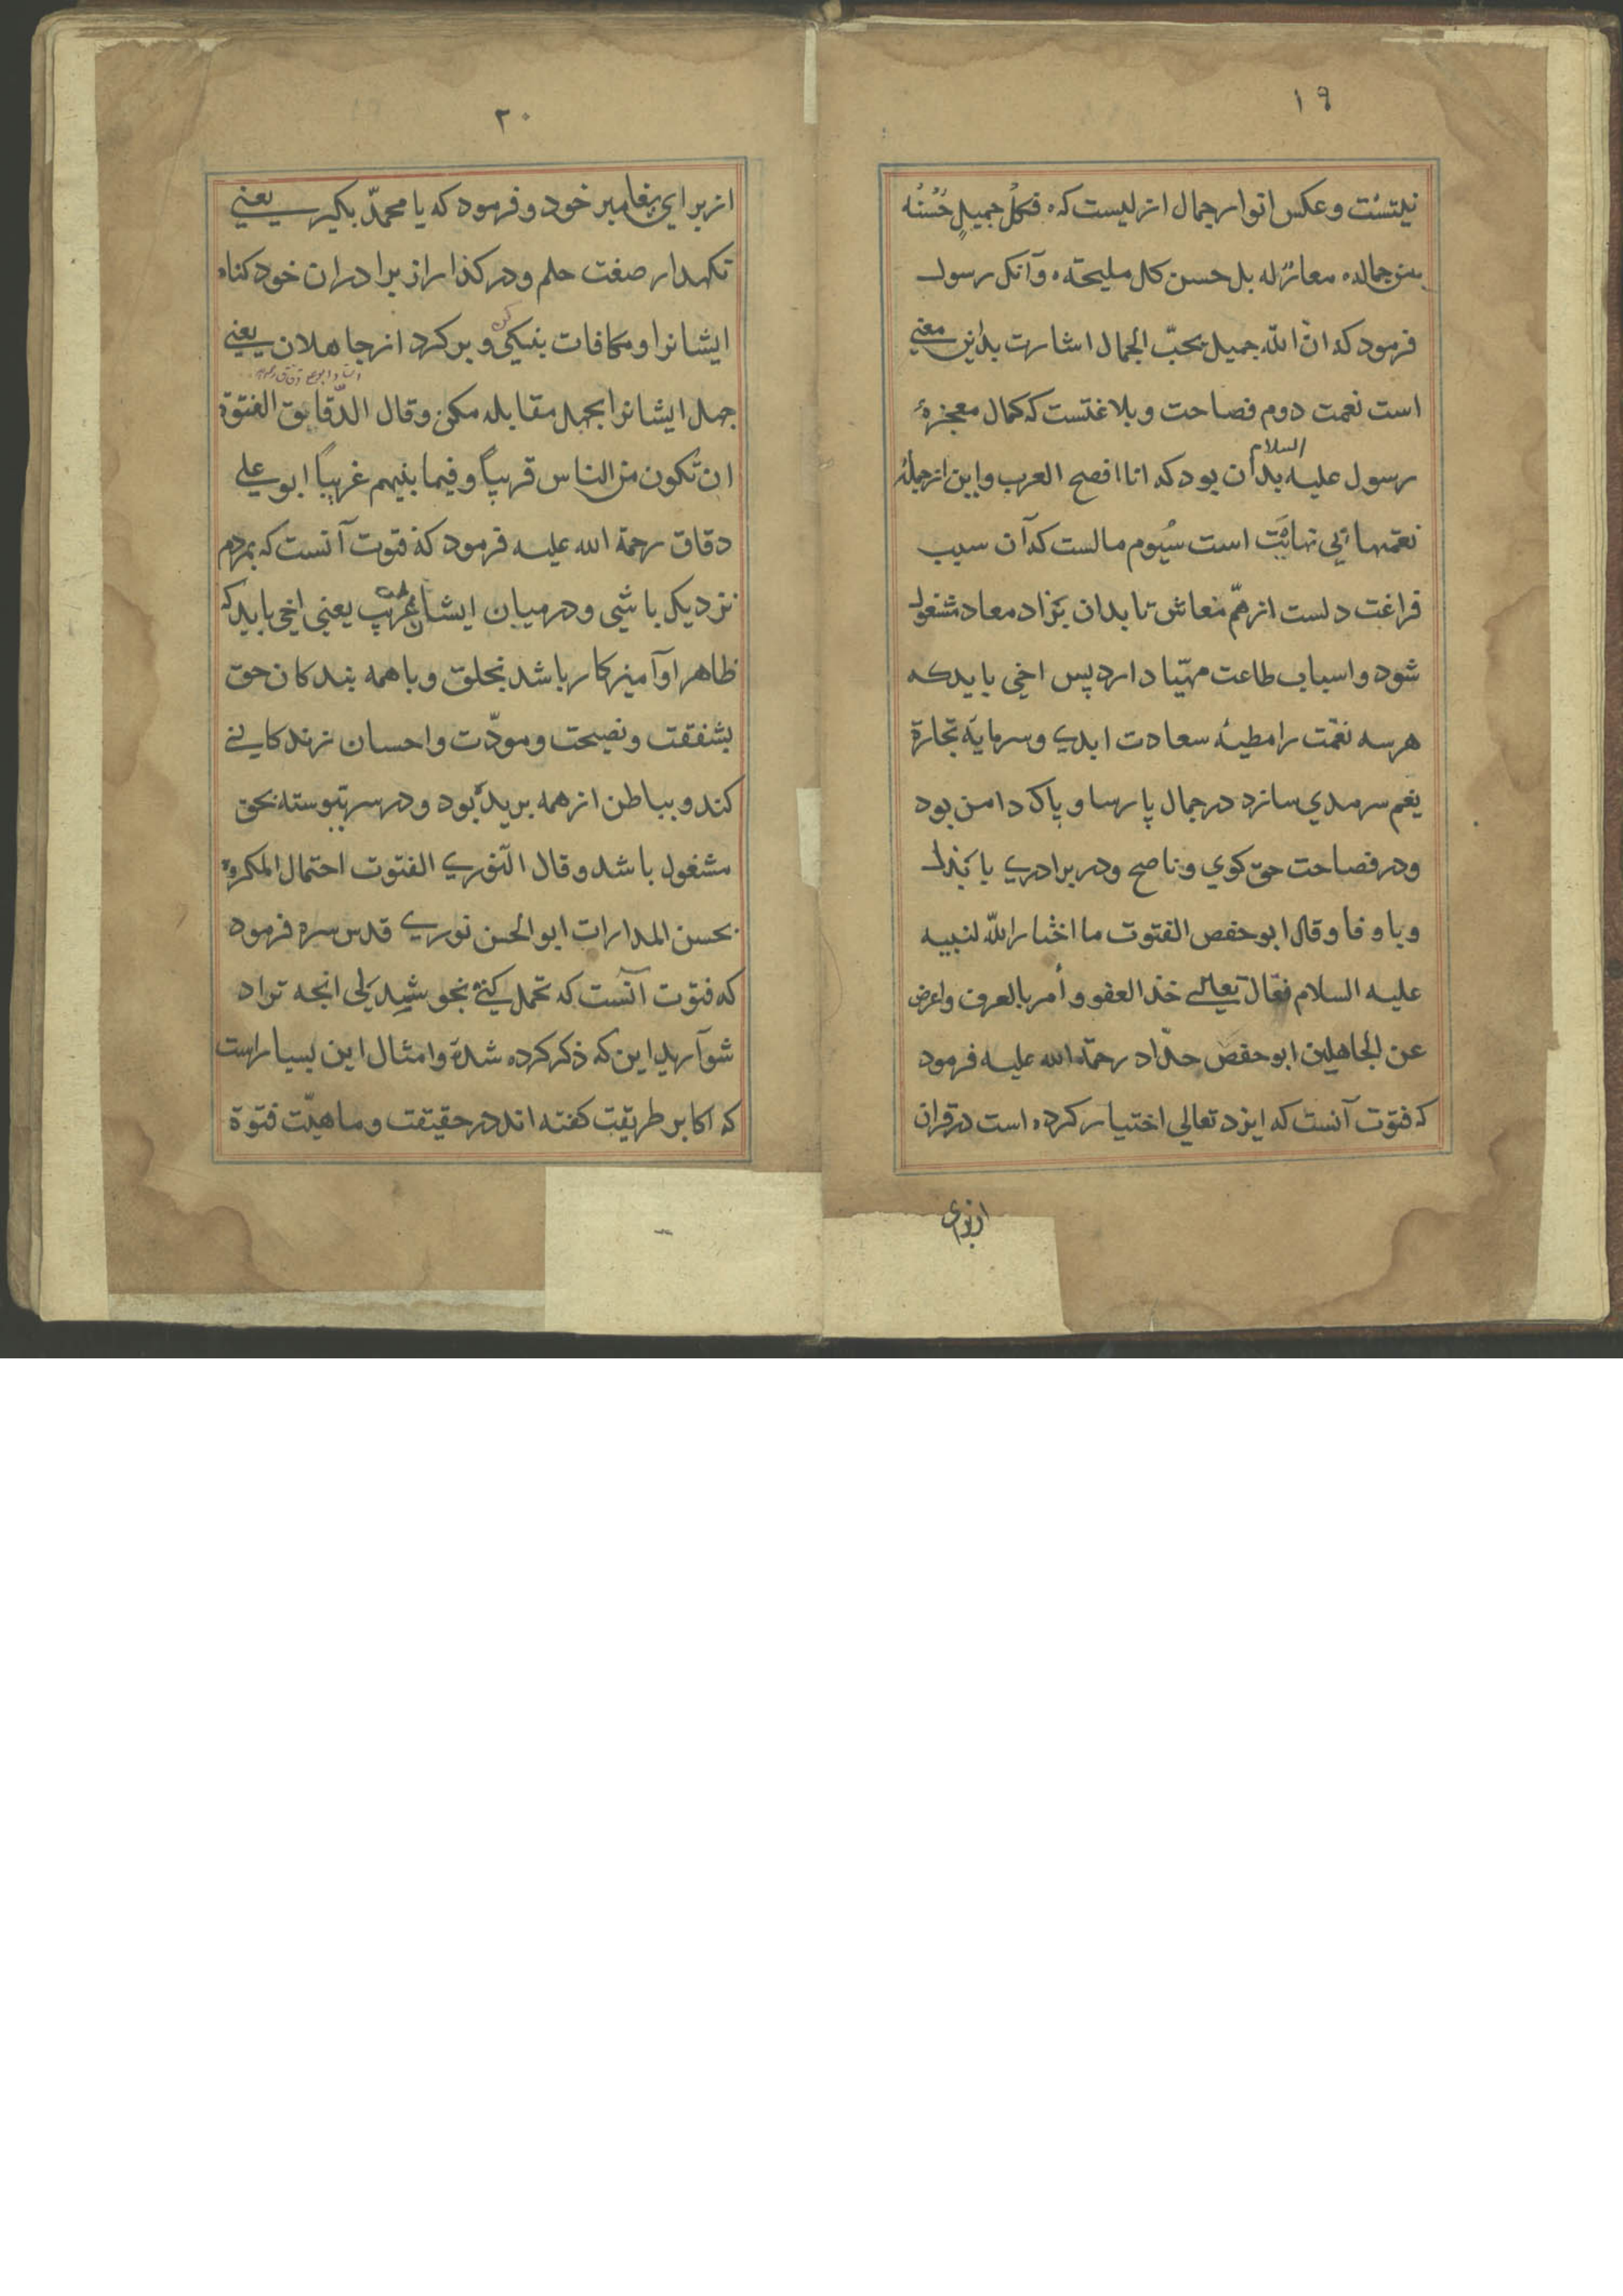 ۱۹
نیتست و عکس انوار جمال ازلیست که ه فکل جمیلٍ حُسْنُه
من جماله ه معارٌ له بل حسن کل ملیحته ه و آنکل رسول
فرمود که ان اللّه جمیل یحبّ الجمال اشارت بداین معنی
است نعمت دوم فصاحت و بلاغتست که کمال معجزهٔ
رسول علیه السلام بدان بود که انا افصح العرب و این از جملهٔ
نعمتهای بی نهایت است سُیُوم مالست که آن سبب
فراغت دلست از همّ معاش تا بدان بزاد معاد مشغول
شود و اسباب طاعت مهیّا دارد پس اخی باید که
هر سه نعمت را مطیهٔ سعادت ابدی و سرمایه تجارة
نعم سرمدی سازد در جمال پارسا و پاک دامن بود
و در فصاحت حق کوی و ناصح و در برادری با بذل
و با وفا و قال ابو حفص الفتوت ما اختار اللّه لنبیه
علیه السلام فقال تعالی خذ العفو و أمر بالعرف و اعرض
عن الجاهلین ابو حفص حدّاد رحمة الله علیه فرمود
که فتوّت آنست که ایزد تعالی اختیار کرده است در قران
از برای
۲۰
از برای پغامبر خود و فرمود که یا محمدّ بکیر یعنی
نکهدار صفت حلم و درکذار از برادران خود کناه
ایشانرا و مکافات بنیکی کن و برکرد از جاهلان یعنی
جهل ایشانرا بجهل مقابله مکن و قال الدّقایق الفتوّة
ان تکون من الناس قریباً و فیما بینهم غریباً ابو علی
دقاق رحمة الله علیه فرمود که فتوت آنست که بمردم
نزدیک باشی و در میان ایشان غریب یعنی اخی باید که
ظاهر او آمیزکار باشد بخلق و با همه بندکان حق
بشفقت و نصیحت و مودّت و احسان زندکانی
کند و بباطن از همه بریده بود و در سر پیوسته بحق
مشغول باشد و قال النّوری الفتوت احتمال المکروه
بحسن المدارات ابو الحسن نوری قدس سره فرمود
که فتوّت آنست که تحمل کنی بخوشدلی انچه تراد
شوآرید این که ذکر کرده شدة و امثال این بسیار است
که اکابر طریقت کفته اند در حقیقت و ماهیّت فتوة